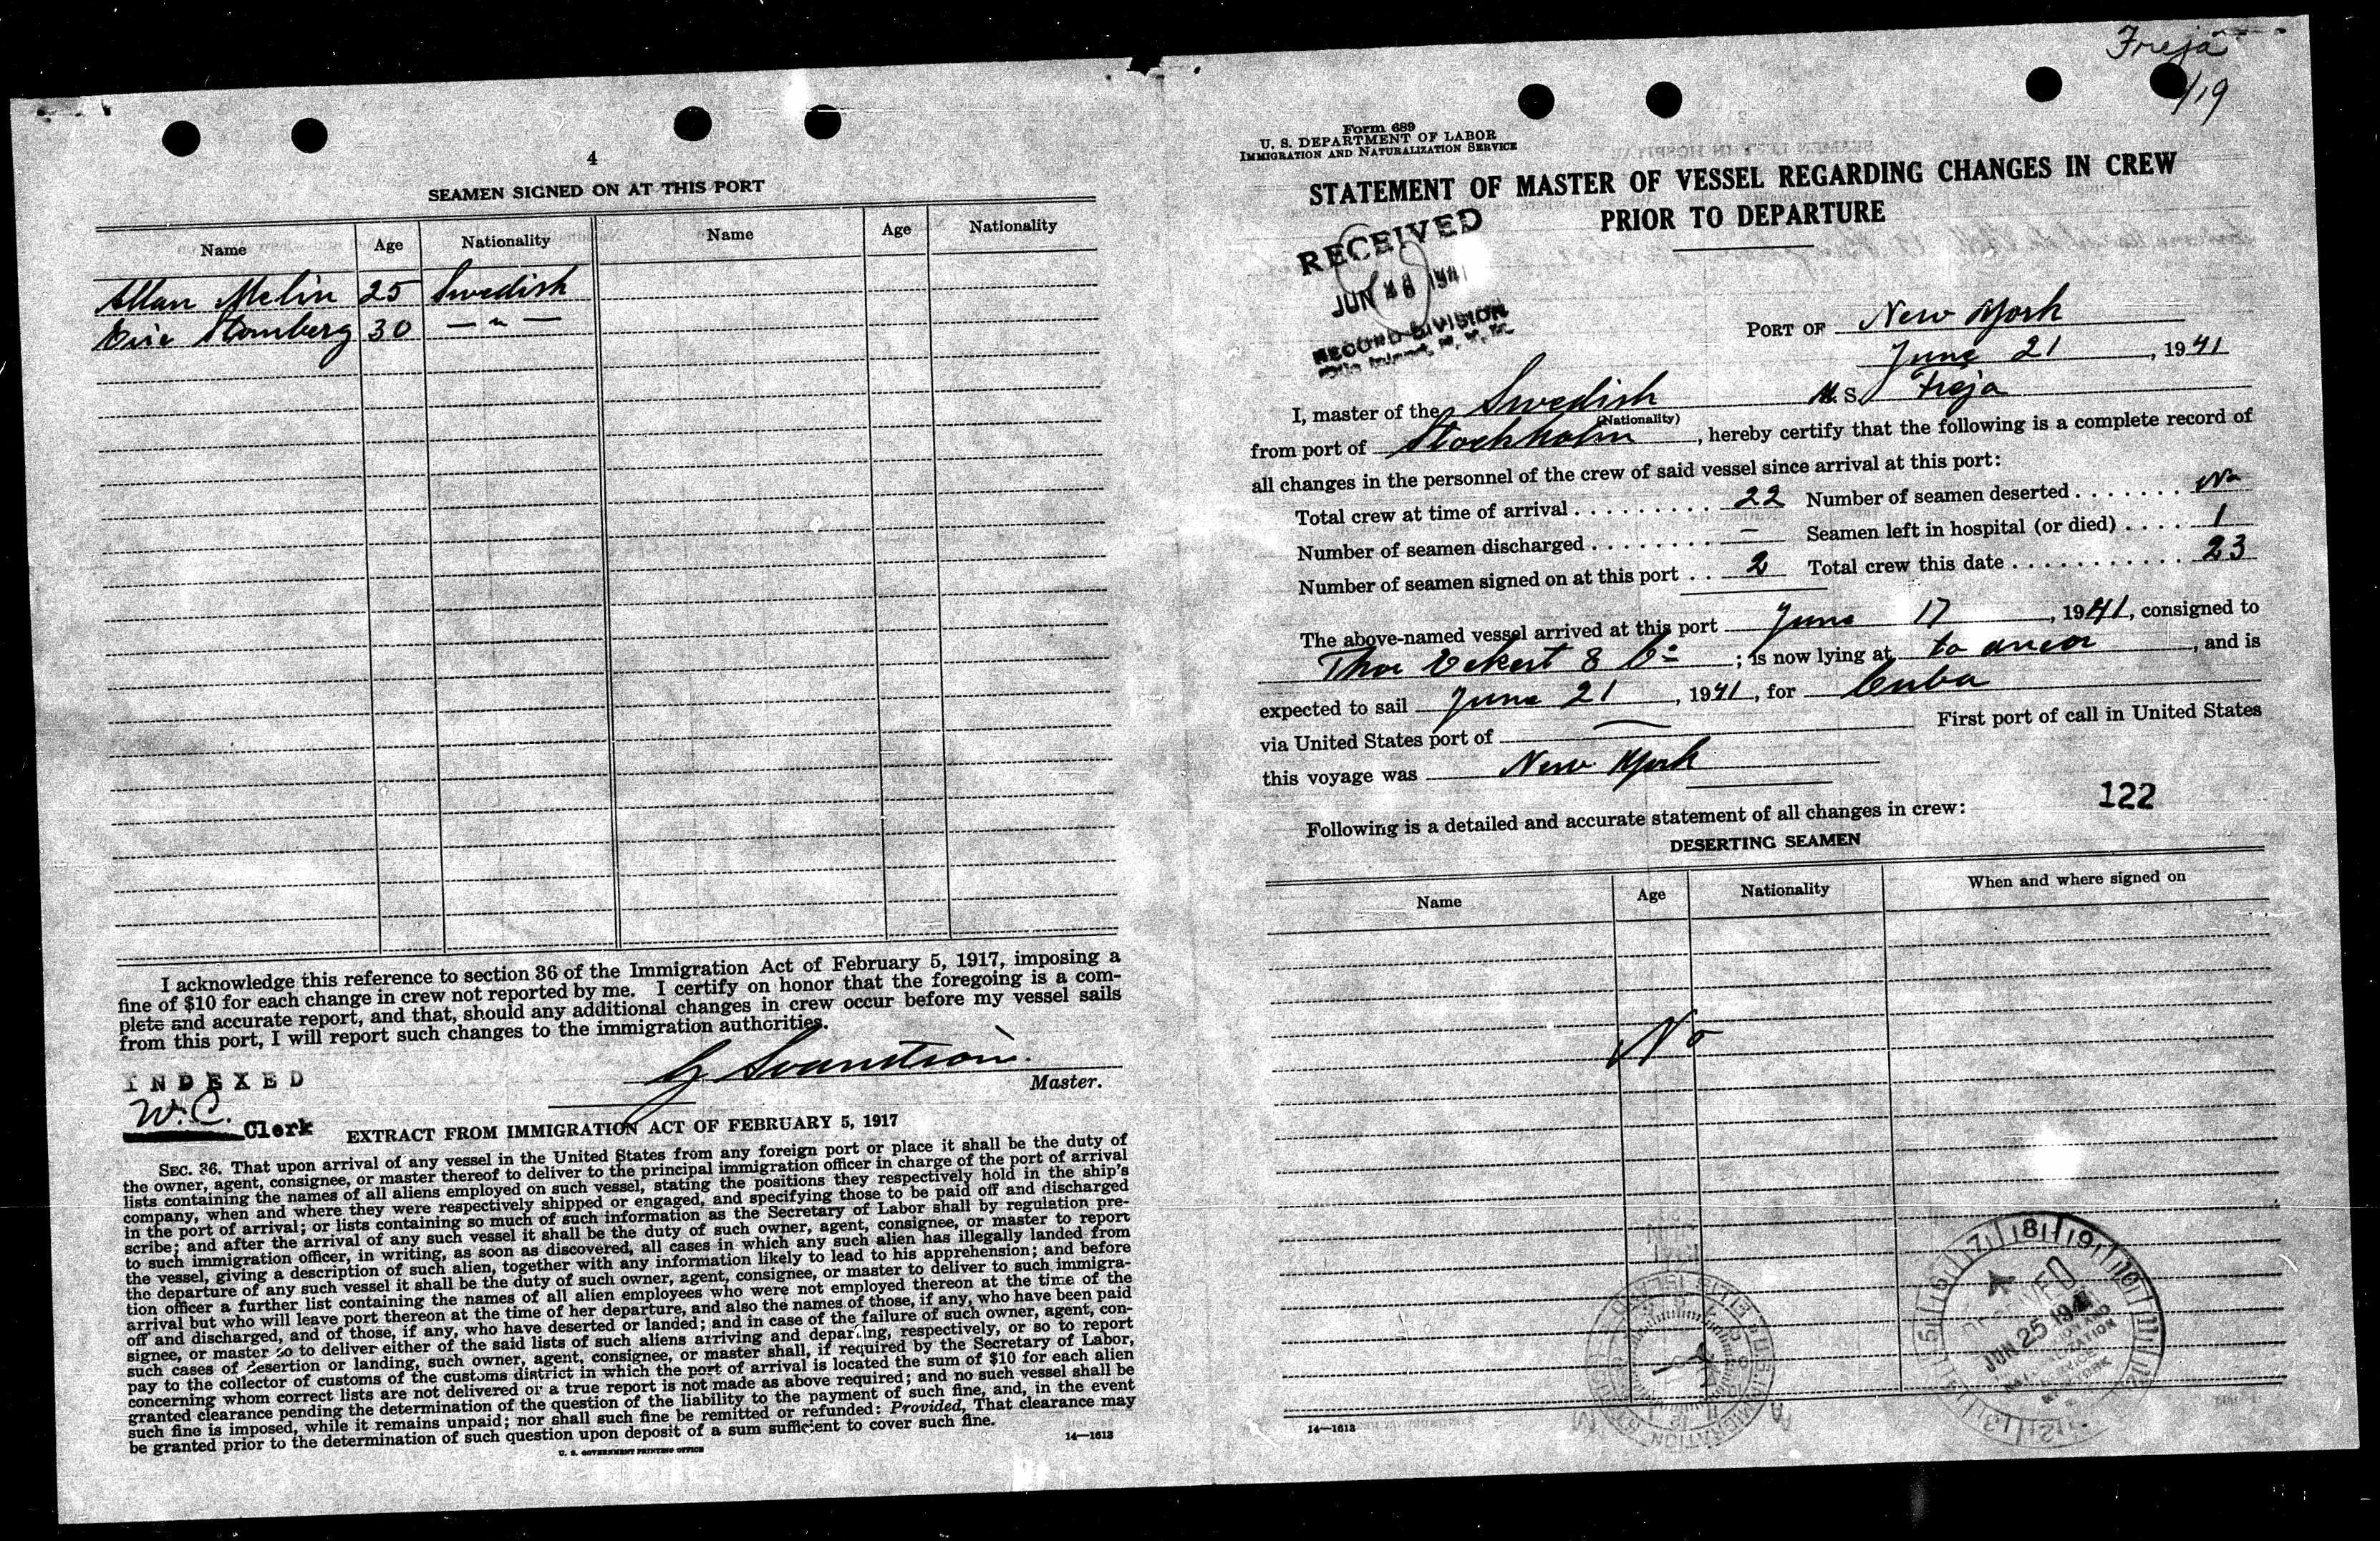 4
SEAMEN SIGNED ON AT THIS PORT
Name Age Nationality Name Age Nationality
Allan Melin 25 Swedish
Eric Stomberg 30 — " —
I acknowledge this reference to section 36 of the Immigration Act of February 5, 1917, imposing a
fine of $10 for each change in crew not reported by me. I certify on honor that the foregoing is a com-
plete and accurate report, and that, should any additional changes in crew occur before my vessel sails
from this port, I will report such changes to the immigration authorities.
INDEXED
Master.
W.C.
Clerk
EXTRACT FROM IMMIGRATION ACT OF FEBRUARY 5, 1917
SEC. 36. That upon arrival of any vessel in the United States from any foreign port or place it shall be the duty of
the owner, agent, consignee, or master thereof to deliver to the principal immigration officer in charge of the port of arrival
lists containing the names of all aliens employed on such vessel, stating the positions they respectively hold in the ship's
company, when and where they were respectively shipped or engaged, and specifying those to be paid off and discharged
in the port of arrival; or lists containing so much of such information as the Secretary of Labor shall by regulation pre-
scribe; and after the arrival of any such vessel it shall be the duty of such owner, agent, consignee, or master to report
to such immigration officer, in writing, as soon as discovered, all cases in which any such alien has illegally landed from
the vessel, giving a description of such alien, together with any information likely to lead to his apprehension; and before
the departure of any such vessel it shall be the duty of such owner, agent, consignee, or master to deliver to such immigra-
tion officer a further list containing the names of all alien employees who were not employed thereon at the time of the
arrival but who will leave port thereon at the time of her departure, and also the names of those, if any, who have been paid
off and discharged, and of those, if any, who have deserted or landed; and in case of the failure of such owner, agent, con-
signee, or master so to deliver either of the said lists of such aliens arriving and departing, respectively, or so to report
such cases of desertion or landing, such owner, agent, consignee, or master shall, if required by the Secretary of Labor,
pay to the collector of customs of the customs district in which the port of arrival is located the sum of $10 for each alien
concerning whom correct lists are not delivered or a true report is not made as above required; and no such vessel shall be
granted clearance pending the determination of the question of the liability to the payment of such fine, and, in the event
such fine is imposed, while it remains unpaid; nor shall such fine be remitted or refunded: Provided, That clearance may
be granted prior to the determination of such question upon deposit of a sum sufficient to cover such fine.
U. S. GOVERNMENT PRINTING OFFICE
14—1613
Freja
1/19
Form 689
U. S. DEPARTMENT OF LABOR
IMMIGRATION AND NATURALIZATION SERVICE
STATEMENT OF MASTER OF VESSEL REGARDING CHANGES IN CREW
PRIOR TO DEPARTURE
RECEIVED
JUN 1941
RECORD DIVISION
PORT OF New York
June 21, 1941
I, master of the Swedish M. S. Freja
(Nationality)
from port of Stockholm, hereby certify that the following is a complete record of
all changes in the personnel of the crew of said vessel since arrival at this port:
Total crew at time of arrival . . . . . . . . . 22 Number of seamen deserted . . . . . . . No
Number of seamen discharged . . . . . . . . — Seamen left in hospital (or died) . . . . 1
Number of seamen signed on at this port . . 2 Total crew this date . . . . . . . . . . . 23
The above-named vessel arrived at this port June 17, 1941, consigned to
Thor Eckert & Co; is now lying at to ancor, and is
expected to sail June 21, 1941, for Cuba
via United States port of — First port of call in United States
this voyage was New York
122
Following is a detailed and accurate statement of all changes in crew:
DESERTING SEAMEN
Name Age Nationality When and where signed on
No
JUN 25 1941
14—1613